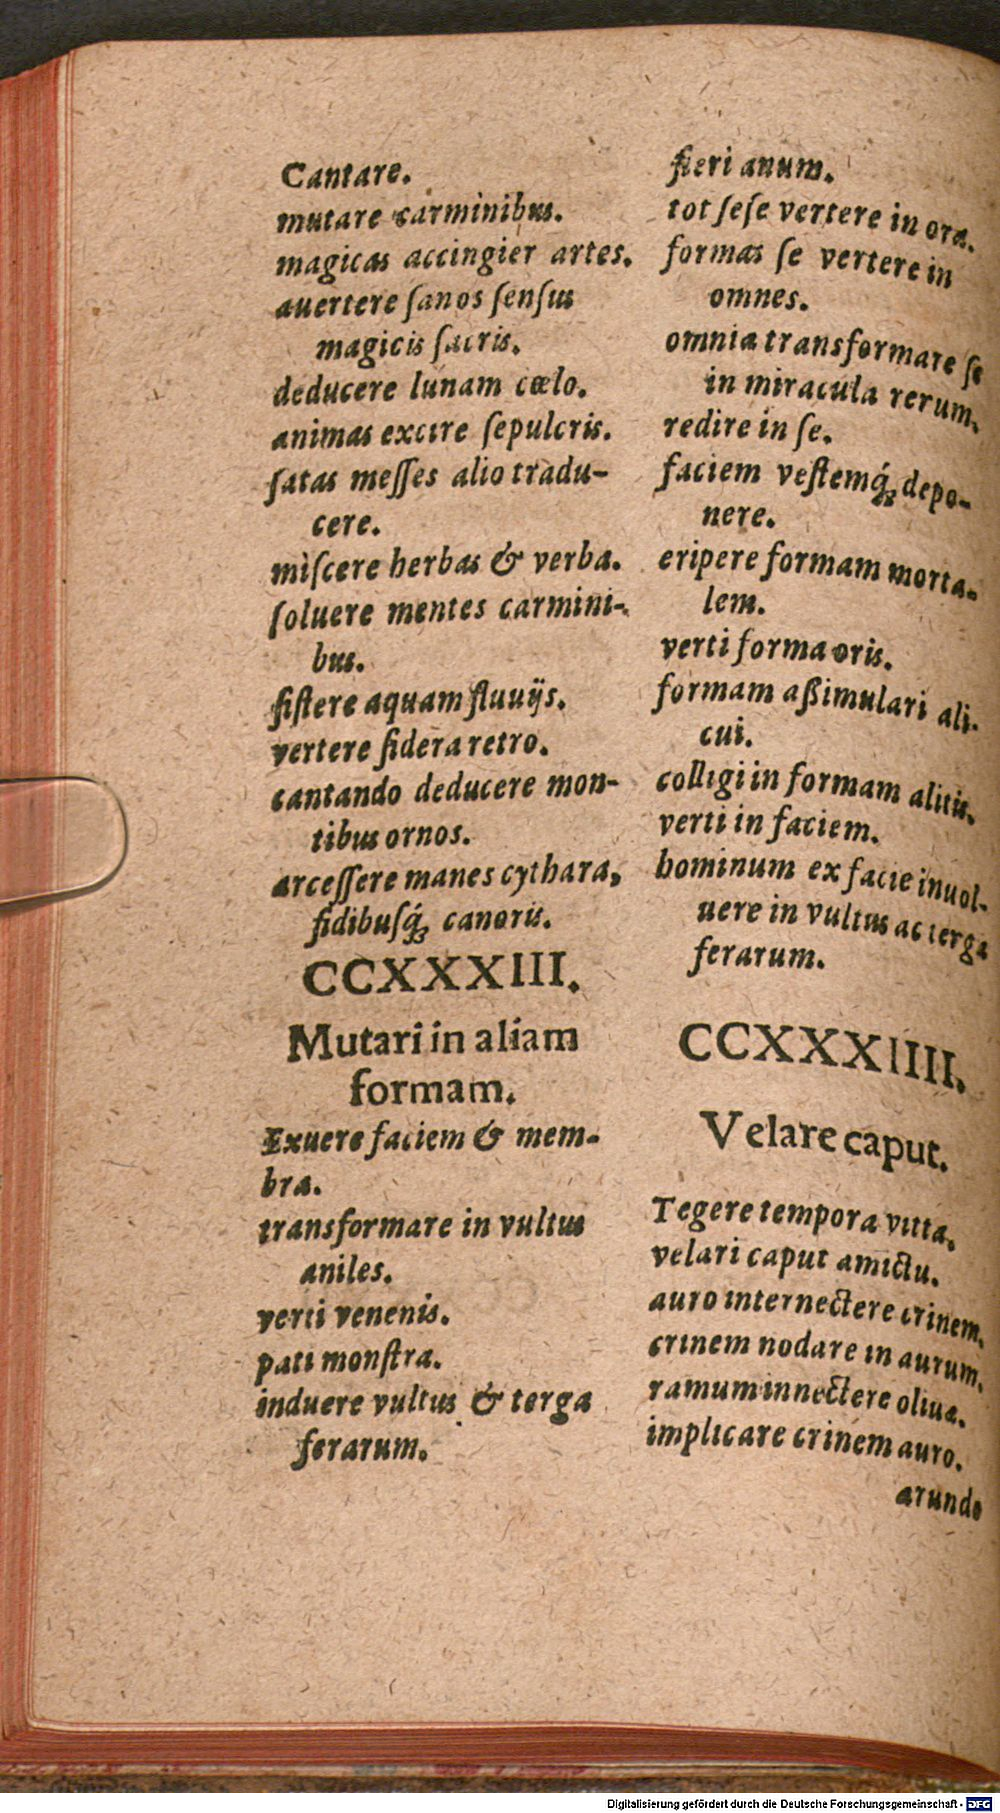 Cantare.
mutare carminibus.
magicas accingier artes.
auertere ſanos ſenſus
magicis ſacris.
deducere lunam cœlo.
animas excire ſepulcris.
ſatas meſſes alio tradu-
cere.
miſcere herbas & verba.
ſoluere mentes carmini-
bus.
ſiſtere aquam fluuijs.
vertere ſidera retro.
cantando deducere mon-
tibus ornos.
arceſſere manes cythara,
fidibuſq́; canoris.
CCXXXIII.
Mutari in aliam
formam.
Exuere faciem & mem-
bra.
transformare in vultus
aniles.
verti venenis.
pati monſtra.
induere vultus & terga
ferarum.
fieri anum.
tot ſeſe vertere in ora.
formas ſe vertere in
omnes.
omnia transformare ſe
in miracula rerum.
redire in ſe.
faciem veſtemq́; depo-
nere.
eripere formam morta-
lem.
verti forma oris.
formam aßimulari ali-
cui.
colligi in formam alitis.
verti in faciem.
hominum ex facie inuol-
uere in vultus ac terga
ferarum.
CCXXXIIII.
Velare caput.
Tegere tempora vitta.
velari caput amictu.
auro internectere crinem.
crinem nodare in aurum.
ramum innectere oliuæ.
implicare crinem auro.
arundo
Digitalisierung gefördert durch die Deutsche Forschungsgemeinschaft - DFG